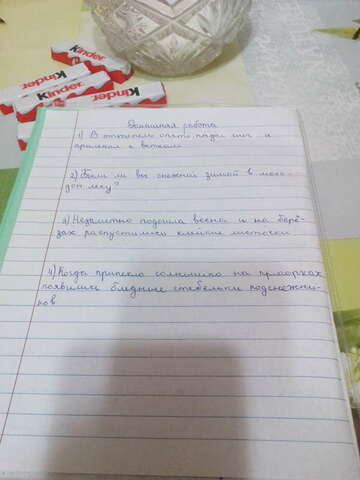 Kinder
Kinder
Kinder
Kinder
Домашняя работа
1) В оттепель опять снег и
прилипал к веткам
2) Были ли вы снежной зимой в моло-
дом лесу?
3) Незаметно подошла весна и на берё-
зах распустились клейкие листочки
4) Когда припекло солнышко на пригорках
появились бледные стебельки подснежни-
ков